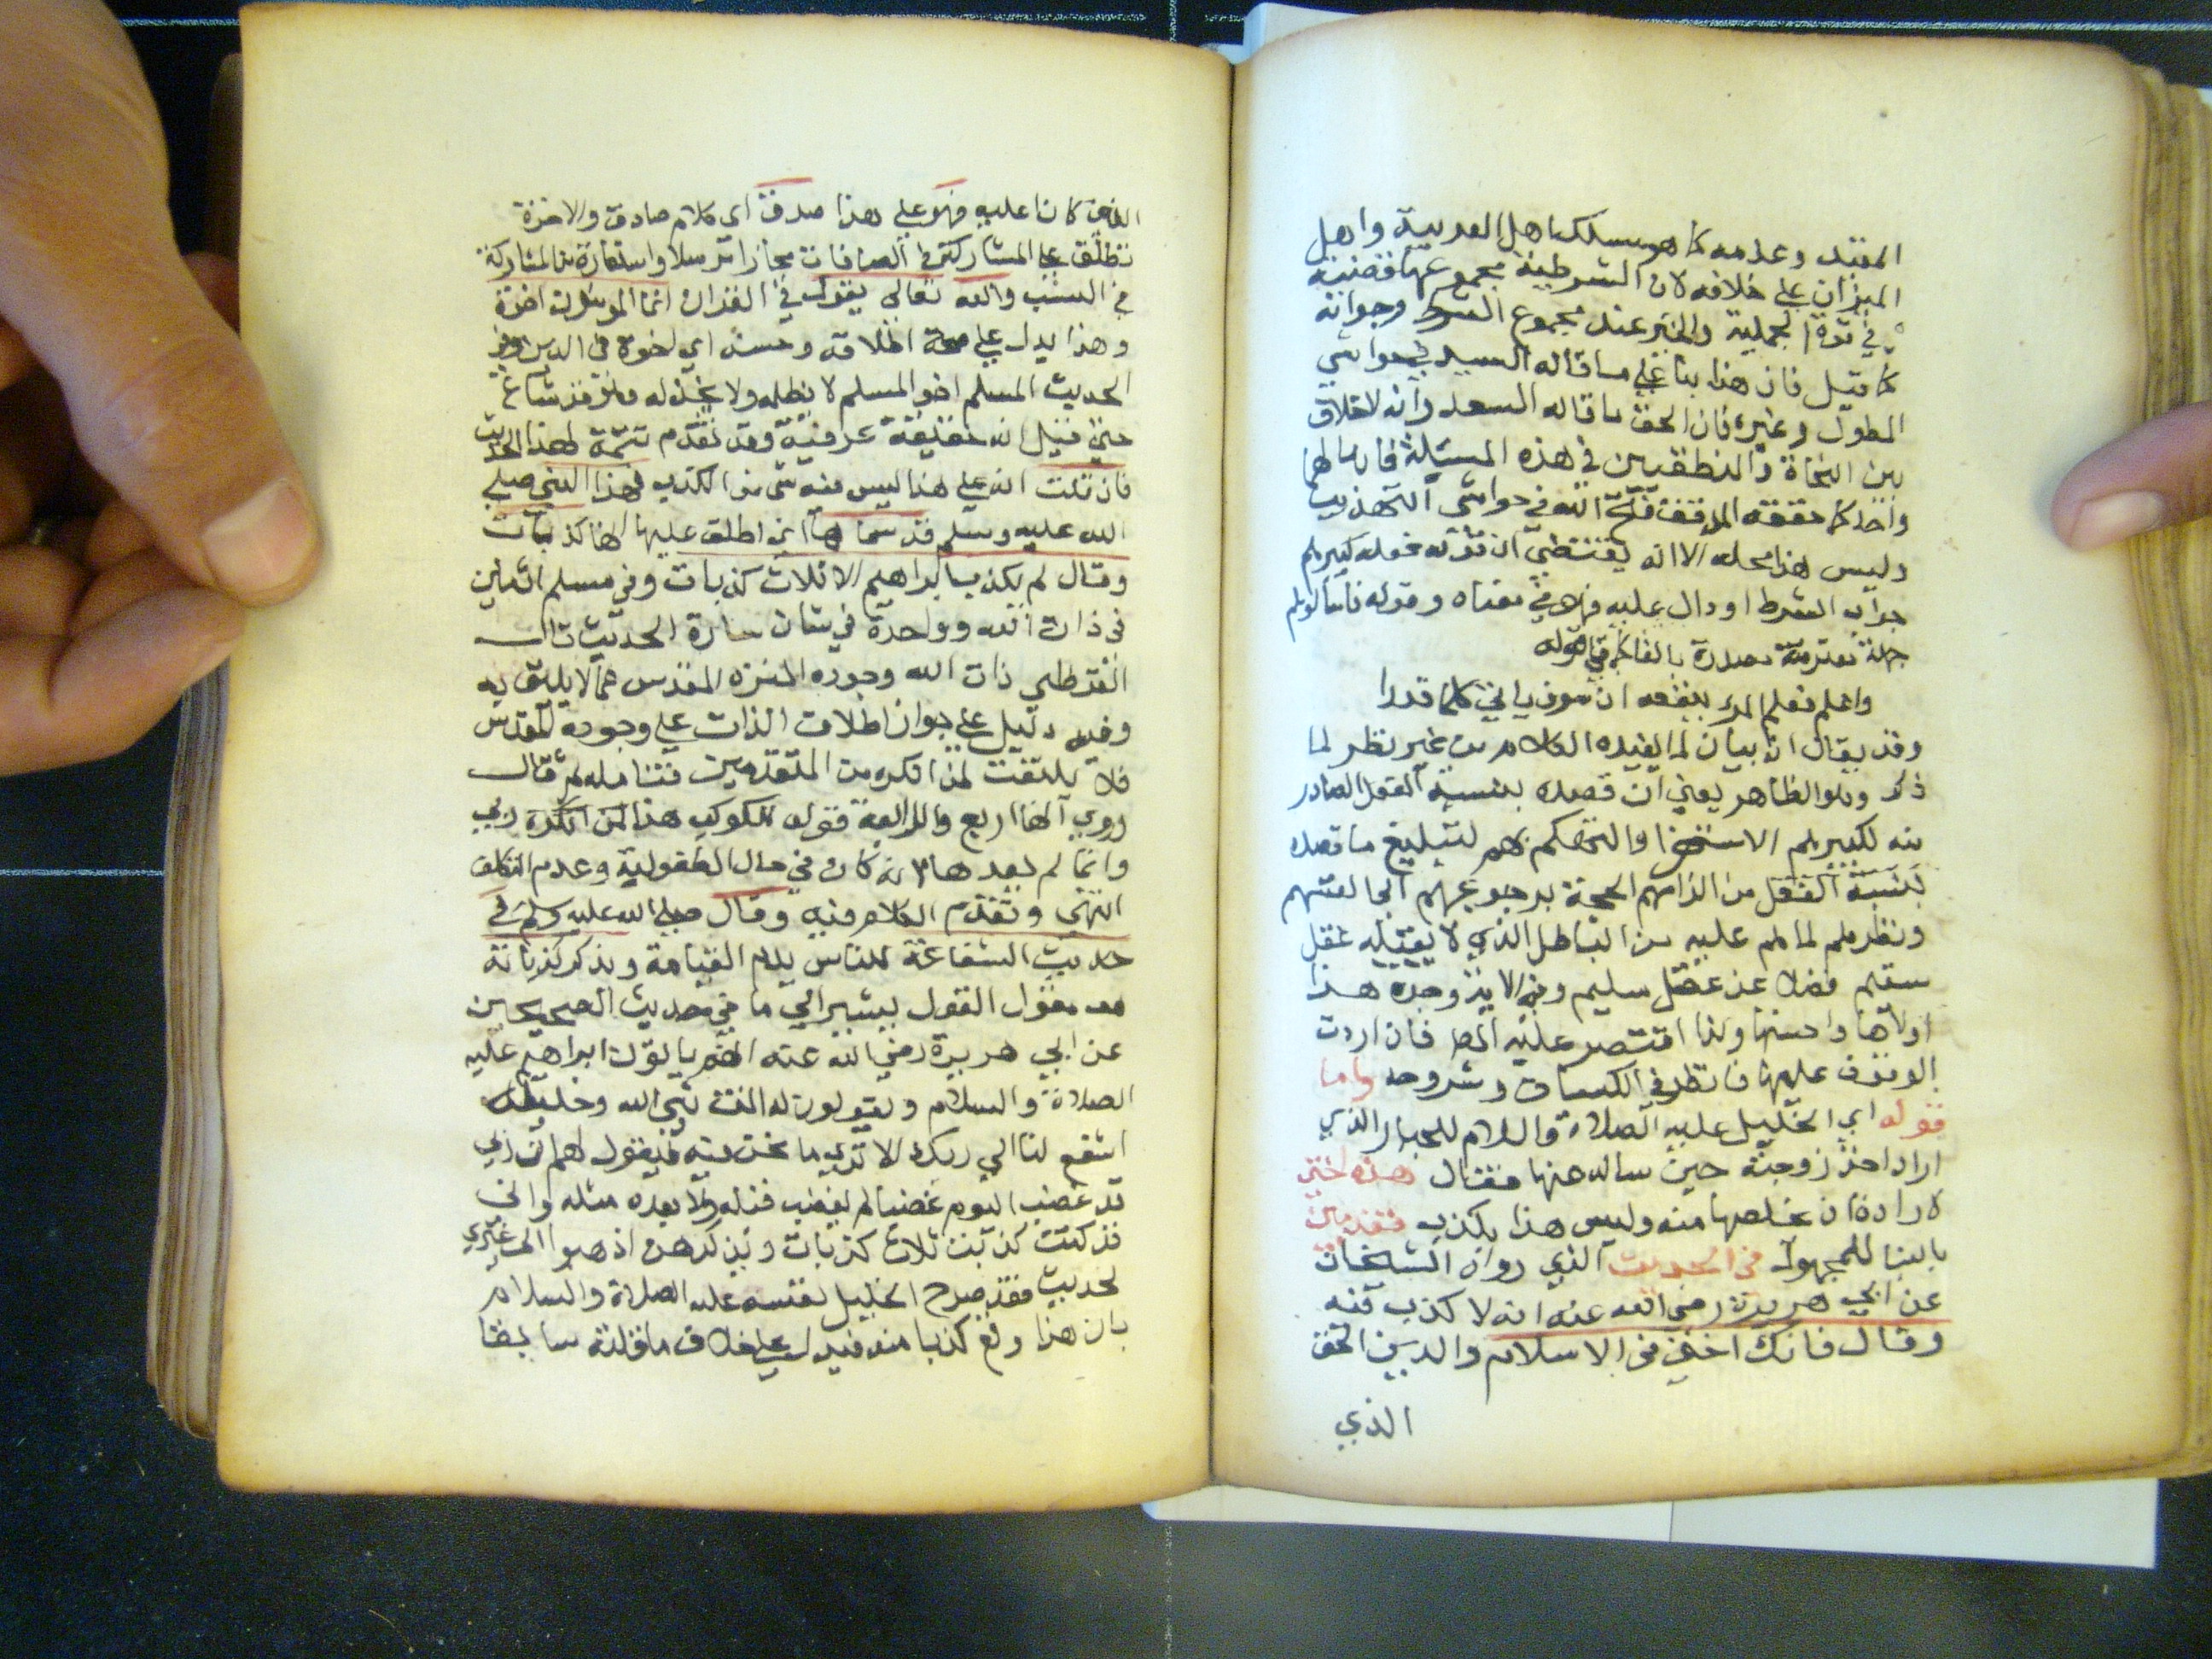 المقيد وعدمه كما هو مسلك اهل العربية واهل
الميزان على خلافه لان الشرطية مجموعها قضية
في قوة الحملية والخبر عند مجموع الشرط وجوابه
كما قيل فان هذا بنا على ما قاله السيد في حواشي
المطول وغيره فان الحق ما قاله السعد وانه لا خلاف
بين النحاة والمنطقيين في هذه المسئلة فما لهما
واحد كما حققه المدقق فتح الله في حواشي التهذيب
وليس هذا محله الا انه يقتضي ان قوله فعله كبيرهم
جواب الشرط او دال عليه فهو في معناه وقوله فاسألوهم
جملة معترضة مصدرة بالفا كما في قوله
واعلم فعلم المرء ينفعه ان سوف ياتي كلما قدرا
وقد يقال انه بيان لما يفيده الكلام من غير نظر لما
ذكر وهو الظاهر يعني ان قصده بنسبة الفعل الصادر
منه لكبيرهم الاستهزا والتهكم بهم لتبليغ ما قصده
بنسبة الفعل من الزامهم الحجة برجوعهم الى
ونظرهم لما هم عليه من الباطل الذي لا يقبله عقل
سقيم فضلا عن عقل سليم وفي الاية وجوه هذا
اولاها واحسنها ولذا اقتصر عليه المص فان اردت
الوقوف عليها فانظر في الكشاف وشروحه واما
قوله اي الخليل عليه الصلاة والسلام للجبار الذي
اراد اخذ زوجته حين ساله عنها فقال هذه اختي
لارادة ان يخلصها منه وليس هذا بكذب فقد بين
بالبنا للمجهول في الحديث الذي رواه الشيخان
عن ابي هريرة رضي الله عنه انه لا كذب فيه
وقال فانك اختي في الاسلام والدين الحق
الذي
كانا عليه فهو على هذا صدق اي كلام صادق والاخوة
تطلق على المشاركة في الصفات مجازا مرسلا او استعارة من المشاركة
في النسب والله تعالى يقول في القران انما المومنون اخوة
وهذا يدل على صحة اطلاقه وحسنه اي اخوة في الدين وفي
الحديث المسلم اخو المسلم لا يظلمه ولا يخذله وقد شاع
حتى قيل انه حقيقة عرفية وقد تقدم تتمة لهذا الحديث
فان قلت انه على هذا ليس فيه شي من الكذب فهذا النبي صلى
الله عليه وسلم قد سماها اي اطلق عليها انها كذبات
وقال لم يكذب ابراهيم الا ثلاث كذبات وفي مسلم اثنتين
في ذات الله وواحدة في شان سارة الحديث قال
القرطبي ذات الله وجوده المنزه المقدس عما لا يليق به
وفيه دليل على جواز اطلاق الذات على وجوده المقدس
فلا يلتفت لمن انكره من المتقدمين فتامله ثم قال
روي انها اربع والرابعة قوله للكوكب هذا ربي
وانما لم يعدها لانه كان في حال الطفولية وعدم التكلف
انتهى وتقدم الكلام فيه وقال صلى الله عليه وسلم في
حديث الشفاعة للناس يوم القيامة ويذكر كذباته
هو مقول القول يشير الى ما في حديث الصحيحين
عن ابي هريرة رضي الله عنه انهم ياتون ابراهيم عليه
الصلاة والسلام ويقولون له انت نبي الله وخليله
اشفع لنا الى ربك الا ترى ما نحن فيه فيقول لهم ان ربي
قد غضب اليوم غضبا لم يغضب قبله ولا بعده مثله واني
قد كنت كذبت ثلاث كذبات ويذكرهن اذهبوا الى غيري
لحديث فقد صرح الخليل بنفسه عليه الصلاة والسلام
بان هذا وقع كذبا منه فيدل على خلاف ما قلته سابقا